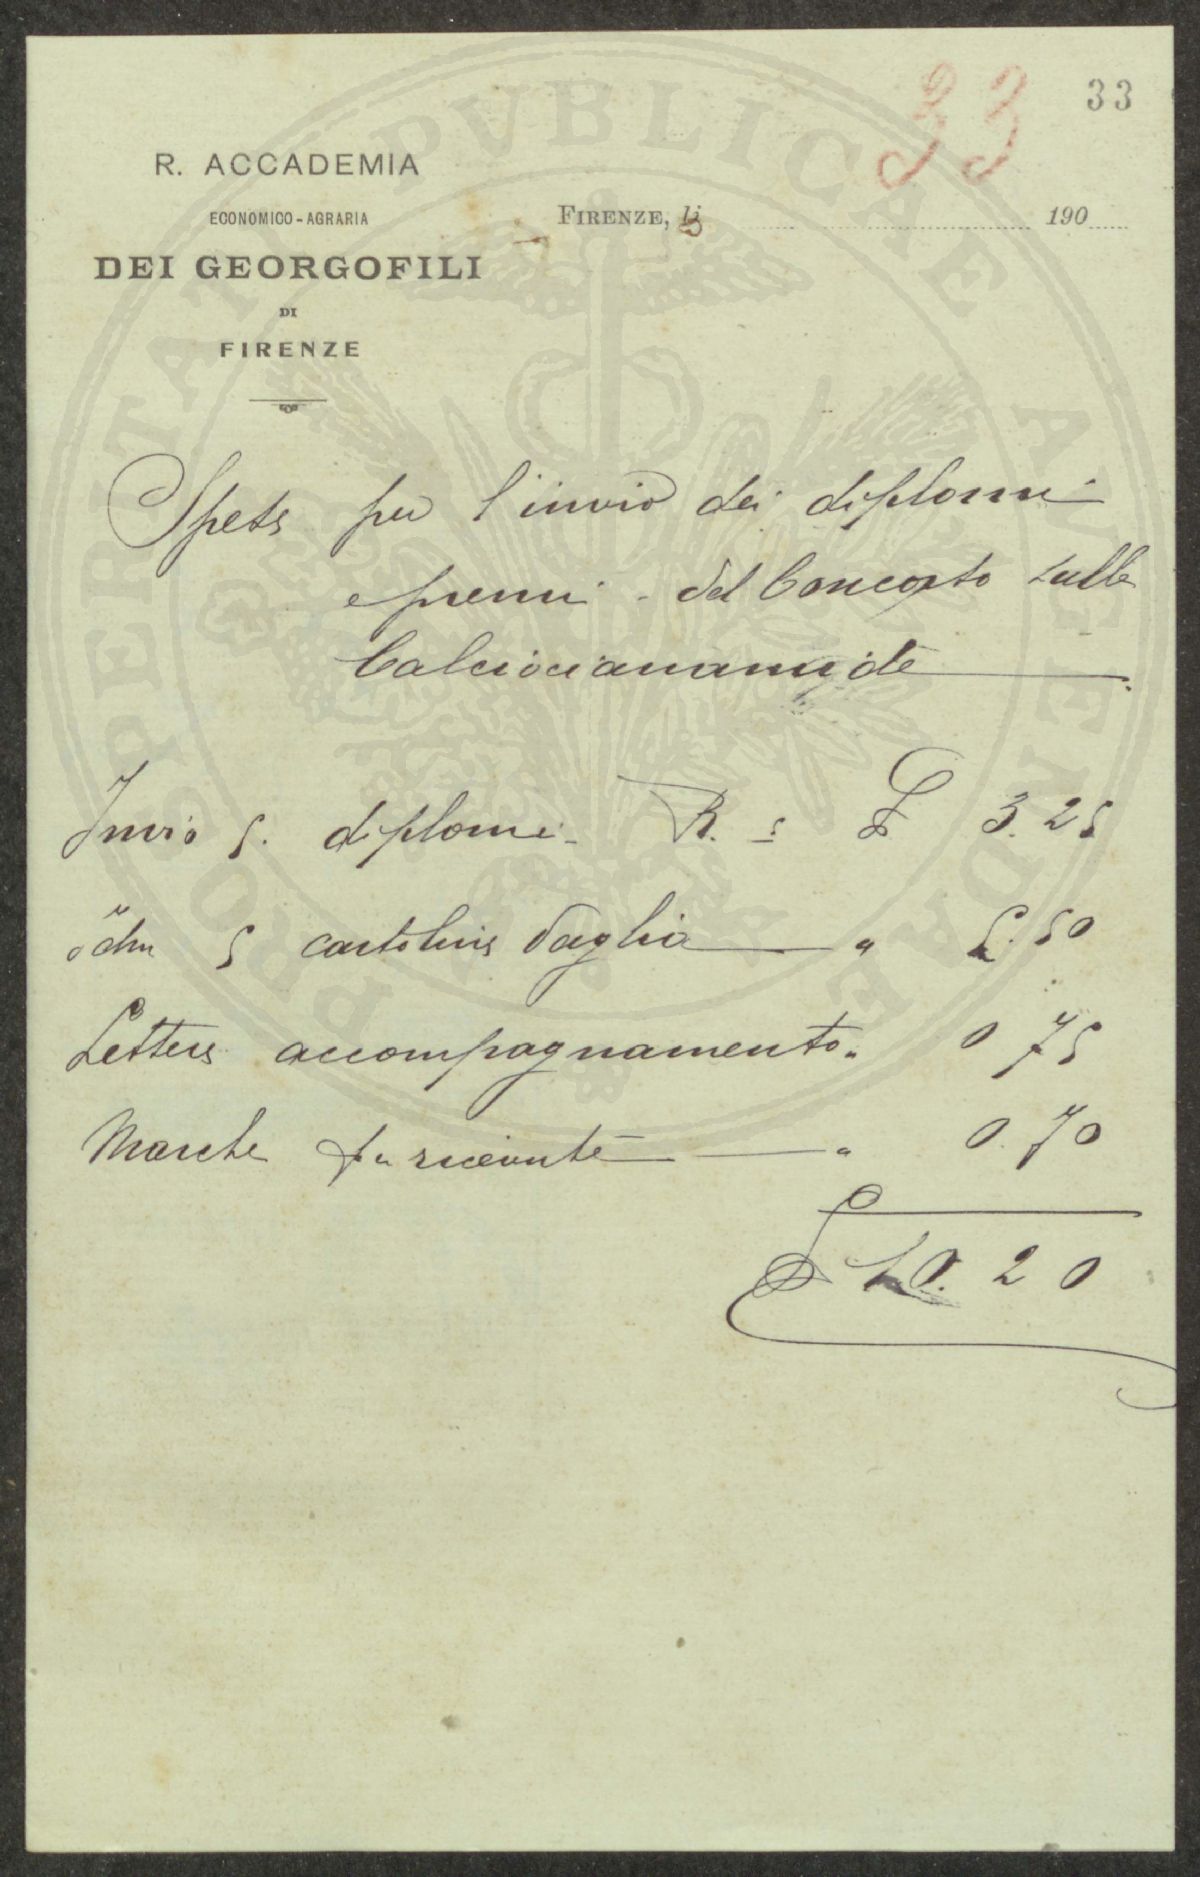 33
33
R. ACCADEMIA
ECONOMICO-AGRARIA
DEI GEORGOFILI
DI
FIRENZE
FIRENZE, li 190
PROSPERITATI PVBLICAE AVGENDAE
Spese per l'invio dei diplomi
e premi del Concorso sulla
Calciocianamide
Invio 5. diplomi R. 5 L 3.25
5 cartoline Vaglia " 5.50
Lettere accompagnamento " 0.75
Marche da ricevute " 0.70
L 10.20